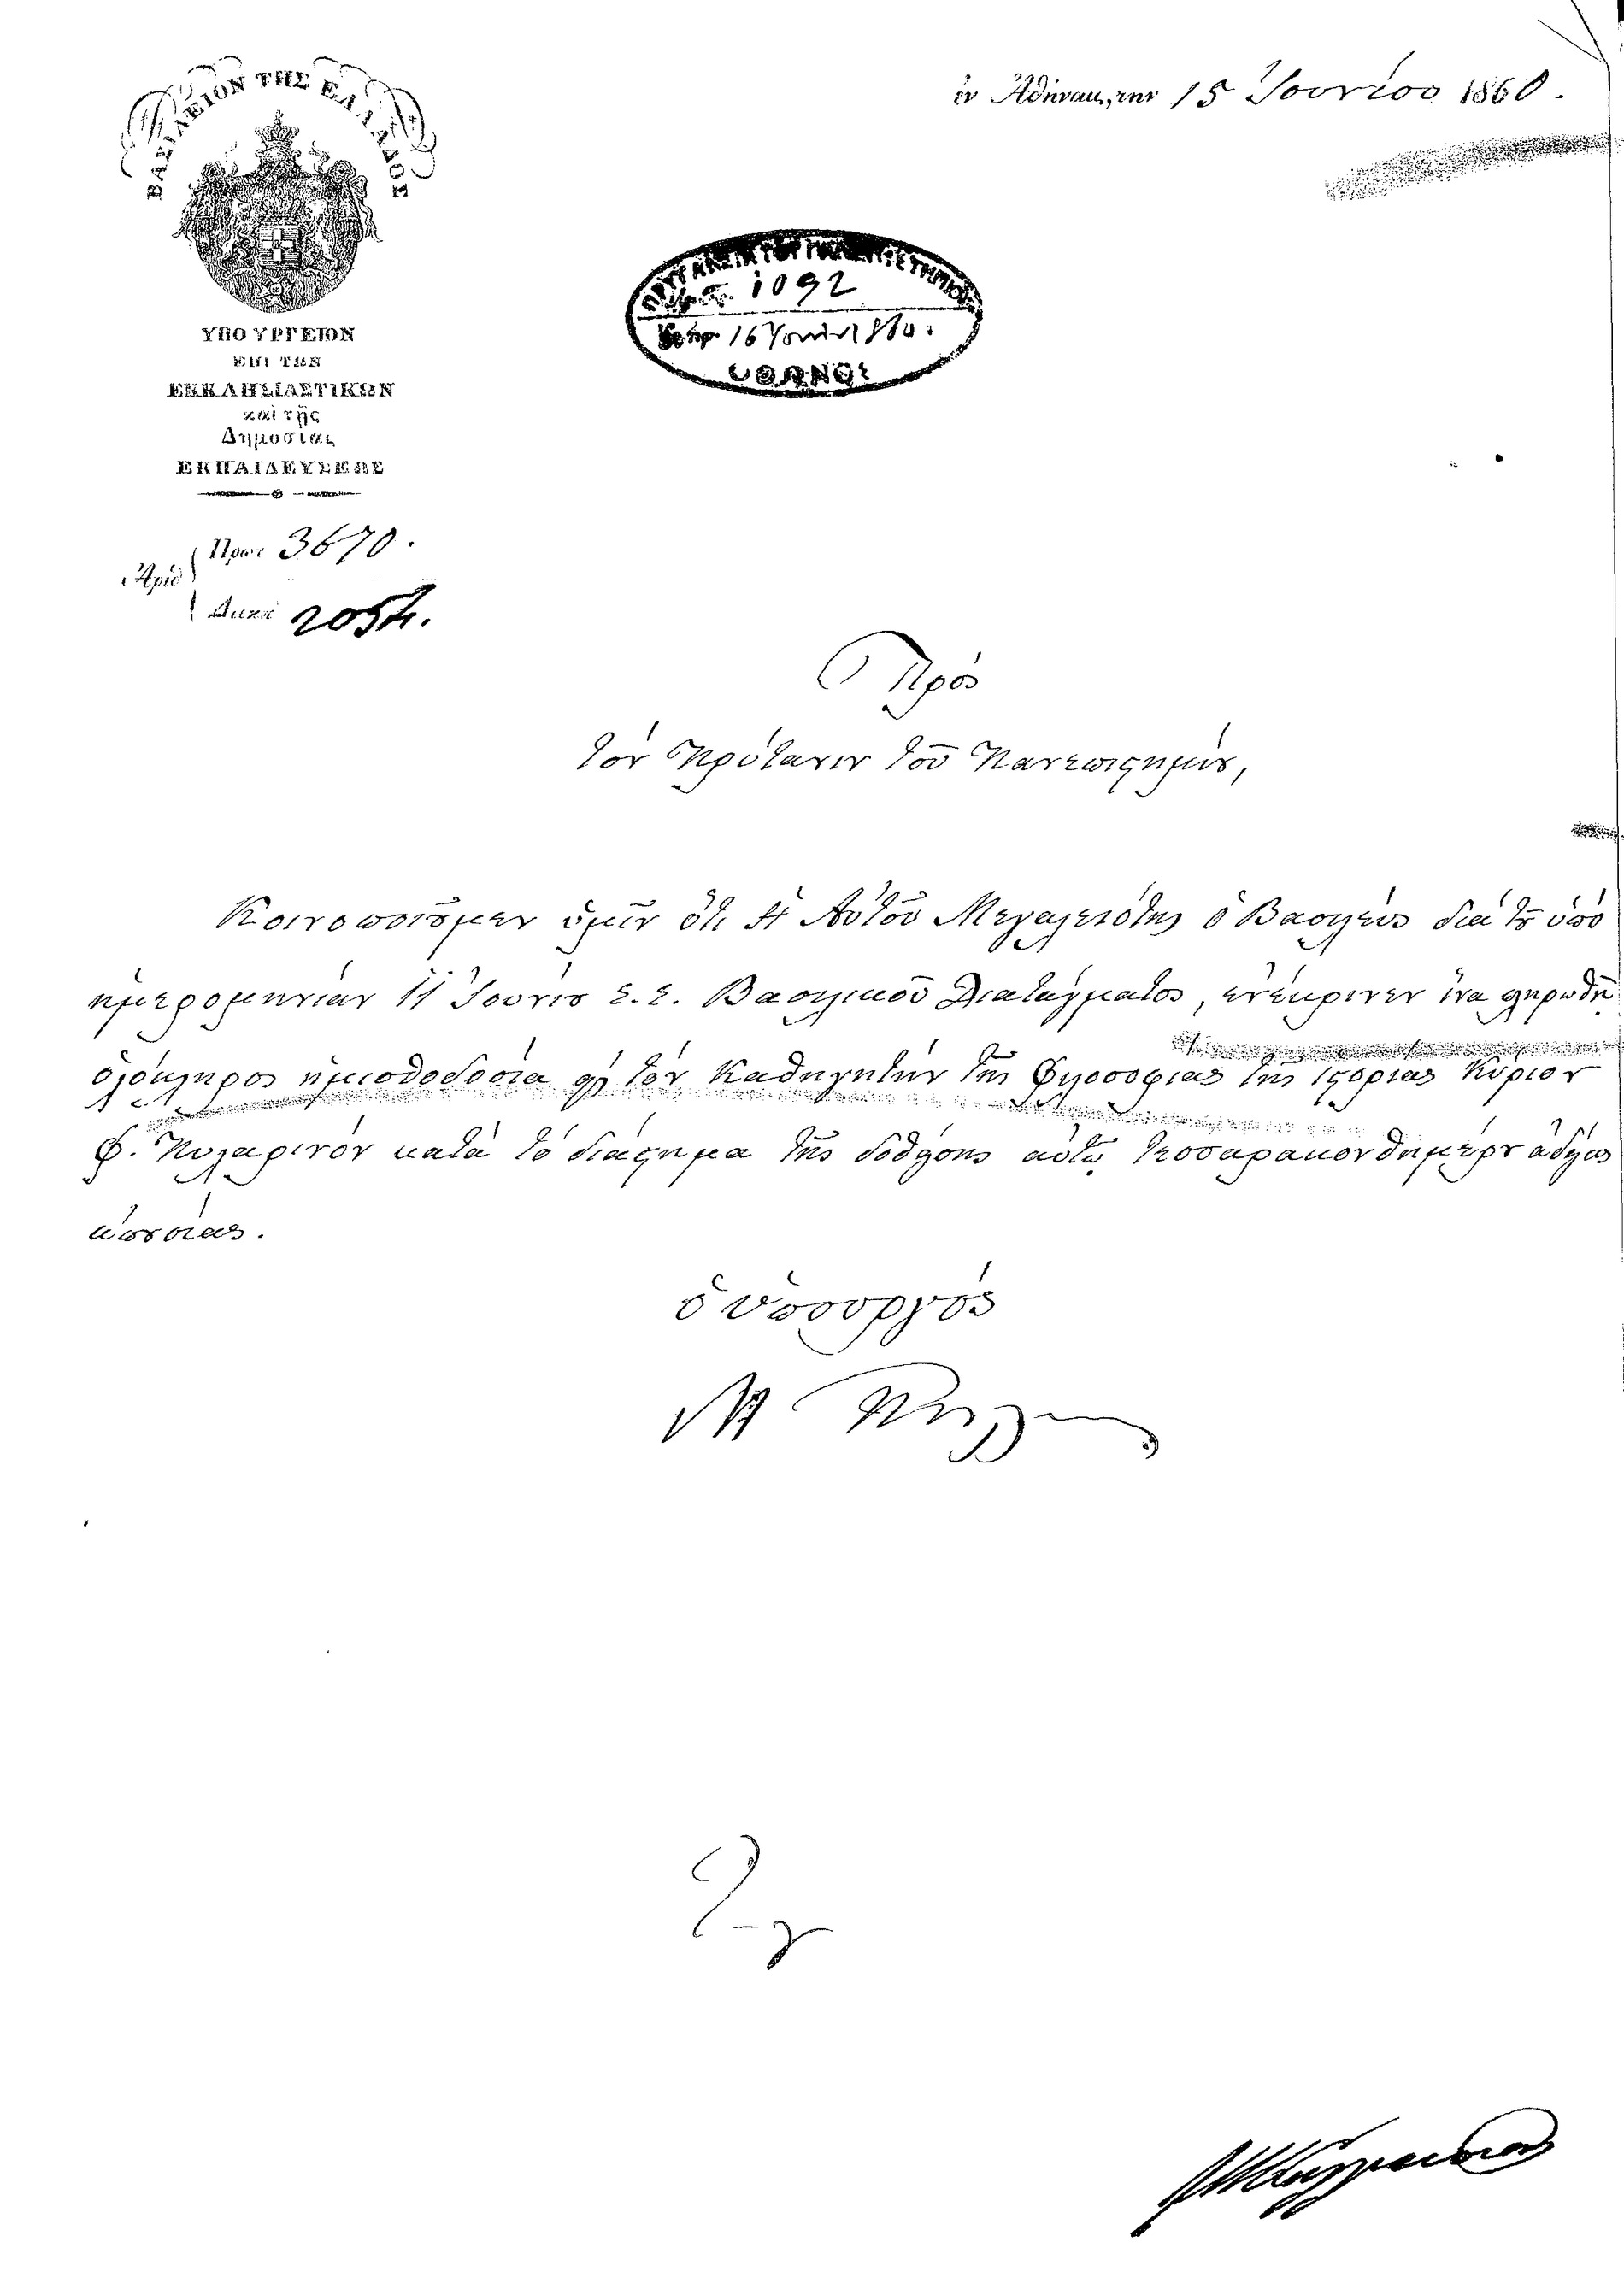 ΒΑΣΙΛΕΙΟΝ ΤΗΣ ΕΛΛΑΔΟΣ
ἐν Ἀθήναις, την 15 Ἰουνίου 1860.
ΥΠΟΥΡΓΕΙΟΝ
ΕΠΙ ΤΩΝ
ΕΚΚΛΗΣΙΑΣΤΙΚΩΝ
καὶ τῆς
Δημοσίας
ΕΚΠΑΙΔΕΥΣΕΩΣ
1092
16 Ἰουνίου 1860.
ΟΘΩΝΟΣ
Ἀριθ
Πρωτ 3670.
Διεκπ 2054.
Πρὸς
τὸν Πρύτανιν τοῦ Πανεπιστημίου,
Κοινοποιοῦμεν ὑμῖν ὅτι ἡ Αὐτοῦ Μεγαλειότης ὁ Βασιλεὺς διὰ τοῦ ὑπὸ
ἡμερομηνίαν 11 Ἰουνίου ἐ. ἔ. Βασιλικοῦ Διατάγματος, ἐνέκρινεν ἵνα πληρωθῇ
ὁλόκληρος ἡ μισοθοδοσία εἰς τὸν Καθηγητὴν τῆς Φιλοσοφίας τῆς ἱστορίας Κύριον
Φ. Πυλαρινὸν κατὰ τὸ διάστημα τῆς δοθείσης αὐτῷ τεσσαρακονθημέρου ἀδείας
ἀπουσίας.
ὁ ὑπουργὸς